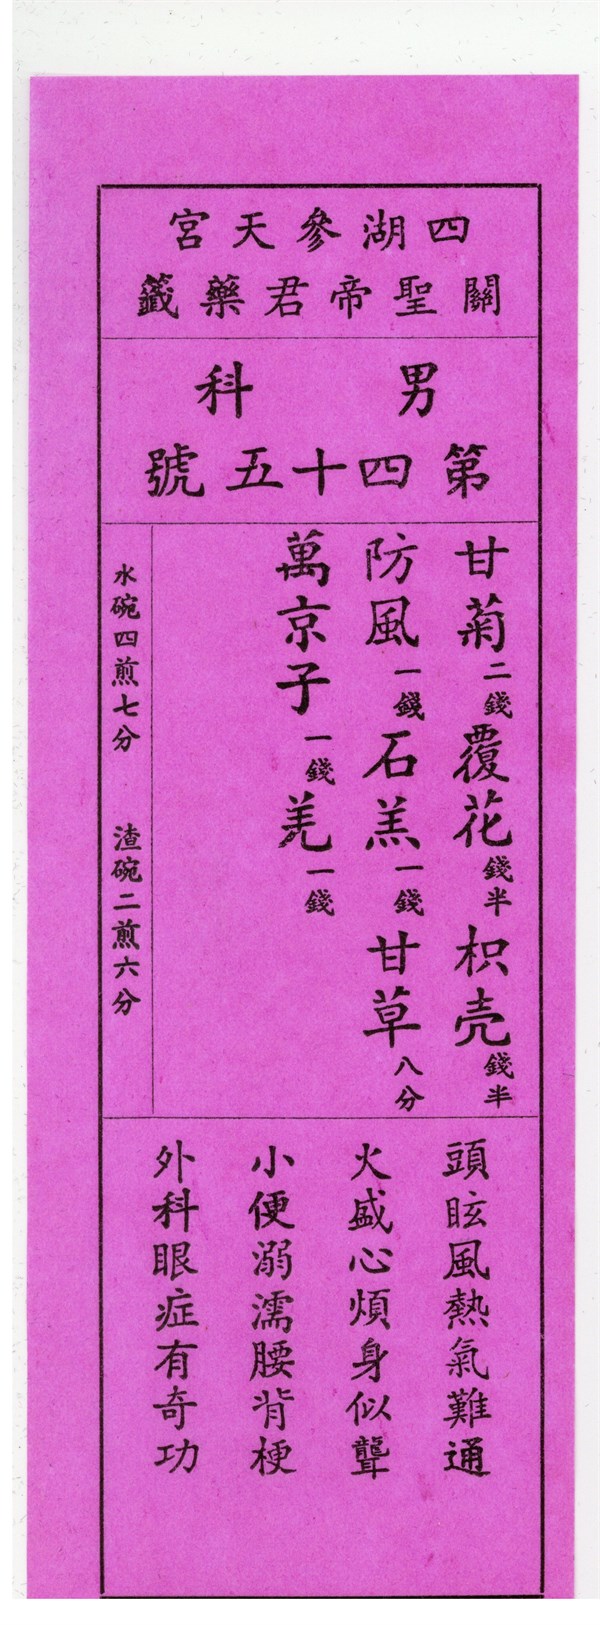 四湖參天宮
關聖帝君藥籤
男科
第四十五號
甘菊二錢 覆花錢半 枳壳錢半
防風一錢 石羔一錢 甘草八分
萬京子一錢 羌一錢
水碗四煎七分 渣碗二煎六分
頭眩風熱氣難通
火盛心煩身似聾
小便溺濡腰背梗
外科眼症有奇功